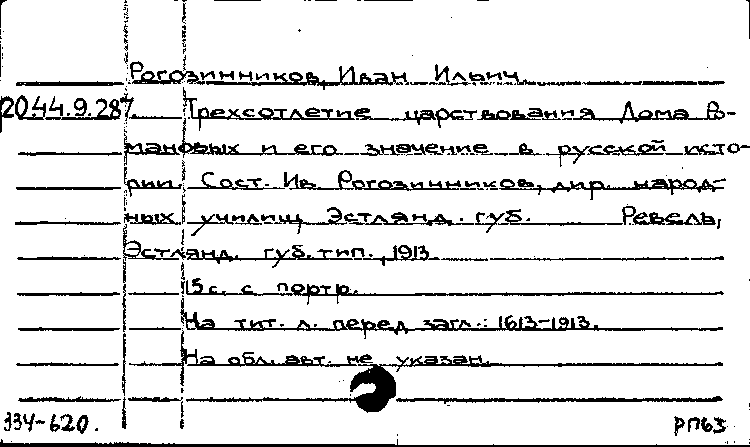 Рогозинников, Иван Ильич.
20.44.9.287. Трехсотлетие царствования Дома Ро-
мановых и его значение в русской исто-
рии. Сост. Ив. Рогозинников, дир. народ-
ных училищ Эстлянд. губ. Ревель,
Эстлянд. губ. тип., 1913.
15 с. с портр.
На тит. л. перед загл.: 1613-1913.
На обл. авт. не указан.
334-620. РП63